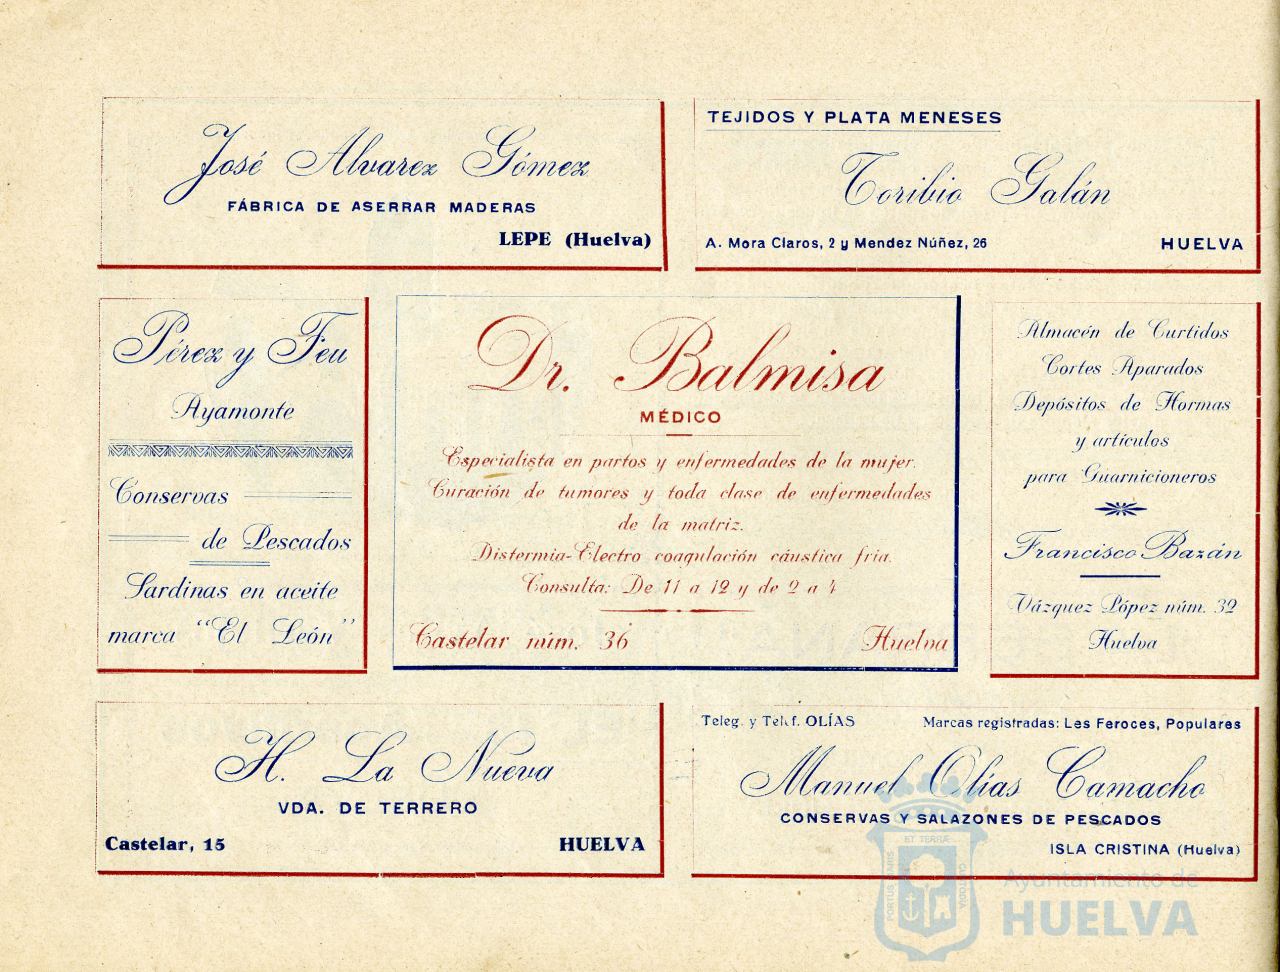 José Alvarez Gómez
FÁBRICA DE ASERRAR MADERAS
LEPE (Huelva)
TEJIDOS Y PLATA MENESES
Toribio Galán
A. Mora Claros, 2 y Mendez Núñez, 26 HUELVA
Pérez y Feu
Ayamonte
Conservas
de Pescados
Sardinas en aceite
marca "El León"
Dr. Balmisa
MÉDICO
Especialista en partos y enfermedades de la mujer.
Curación de tumores y toda clase de enfermedades
de la matriz.
Distermia-Electro coagulación cáustica fría.
Consulta: De 11 a 12 y de 2 a 4
Castelar núm. 36 Huelva
Almacén de Curtidos
Cortes Aparados
Depósitos de Hormas
y artículos
para Guarnicioneros
Francisco Bazán
Vázquez López núm. 32
Huelva
H. La Nueva
VDA. DE TERRERO
Castelar, 15 HUELVA
Teleg. y Telef. OLÍAS Marcas registradas: Les Feroces, Populares
Manuel Olías Camacho
CONSERVAS Y SALAZONES DE PESCADOS
ISLA CRISTINA (Huelva)
PORTUS MARIS ET TERRÆ CUSTODIA
Ayuntamiento de
HUELVA